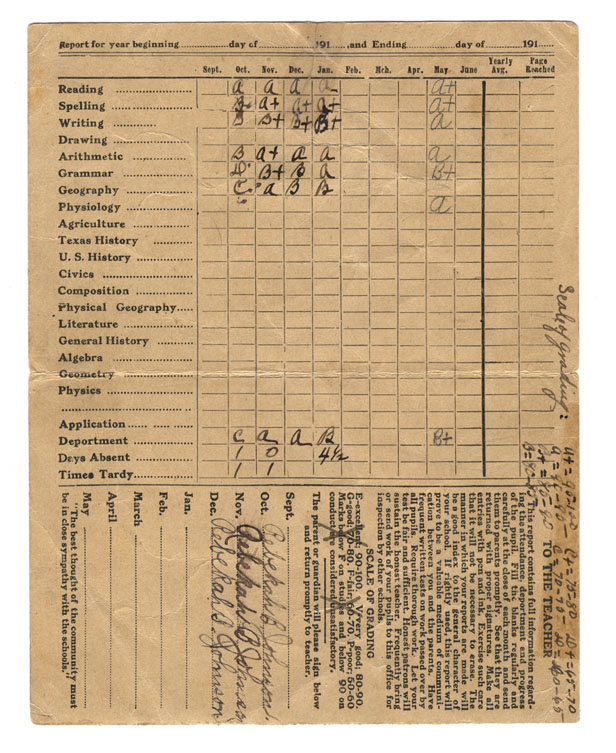 Report for year beginning day of 191 , and Ending day of 191
Sept. Oct. Nov. Dec. Jan. Feb. Mch. Apr. May. June Yearly Avg. Page Reached
Reading A A A A A+
Spelling B A+ A+ A+ A+
Writing B B+ B+ B+ A
Drawing
Arithmetic B A+ A A A
Grammar B+ B A B+
Geography C A B B
Physiology A
Agriculture
Texas History
U. S. History
Civics
Composition
Physical Geography
Literature
General History
Algebra
Geometry
Physics
Application
Deportment C A A B B+
Days Absent 1 0 4½
Times Tardy 1 1
Scale of grading:
A+ = 90-100- C+ = 75-80 D+ = 65-70
TO THE TEACHER
This report contains full information regard-
ing the attendance, deportment and progress
of the pupil. Fill the blanks regularly and
carefully at the close of each month and send
them to parents promptly. See that they are
returned with proper signatures. Make all
entries with pen and ink. Exercise such care
that it will not be necessary to erase. The
manner in which your reports are made will
be a good index to the general character of
your school. If rightly used this report will
prove to be a valuable medium of communi-
cation between you and the parents. Have
frequent written tests on work passed over by
all pupils. Require thorough work. Let your
test be fair and sufficient. Honest patrons will
sustain the honest teacher. Frequently bring
or send work of your pupils to this office for
inspection by other schools.
SCALE OF GRADING
E-excellent, 90-100. V-very good, 80-90.
G-good, 70-80 F-fair, 60-70, P-poor, 50-60
Marks below F on studies and below 90 on
conduct are considered unsatisfactory.
The parent or guardian will please sign below
and return promptly to teacher.
Sept.
Oct. Rebekah B Johnson
Nov. Rebekah B Johnson
Dec. Rebekah B Johnson
Jan.
Feb.
March
April
May
"The best thought of the community must
be in close sympathy with the schools."